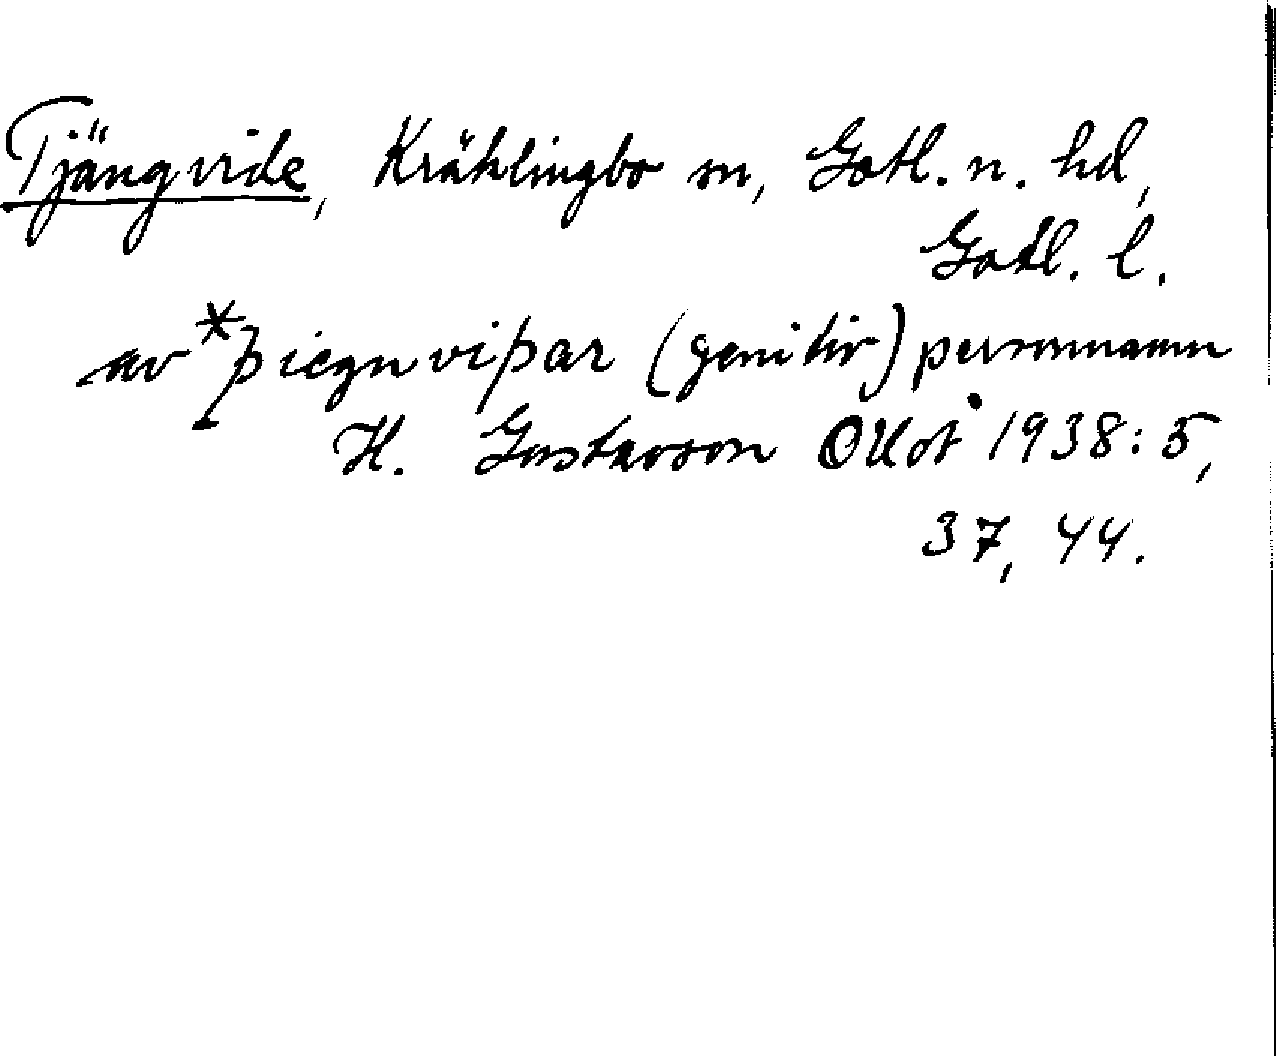 Tjängvide, Kräklingbo sn, Gotl. n. hd,
Gotl. l.
av *þiegnviþar (genitiv) personnamn
H. Gustavson OUoÅ 1938:5,
37, 44.